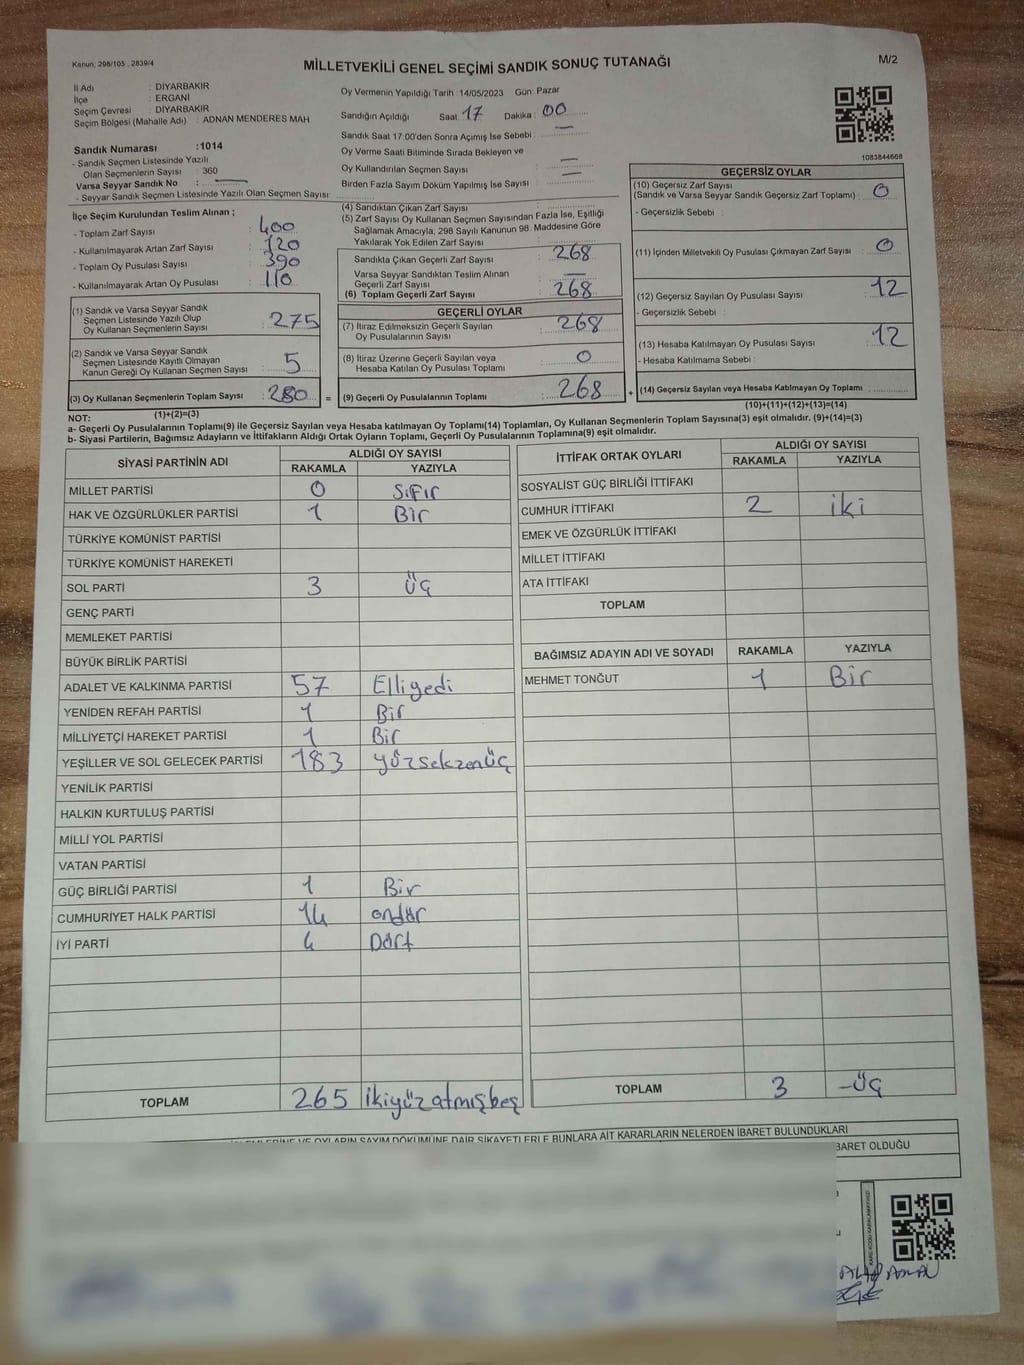 Kanun: 298/105 , 2839/4
MİLLETVEKİLİ GENEL SEÇİMİ SANDIK SONUÇ TUTANAĞI
M/2
İl Adı : DİYARBAKIR
İlçe : ERGANİ
Seçim Çevresi : DİYARBAKIR
Seçim Bölgesi (Mahalle Adı) : ADNAN MENDERES MAH
Sandık Numarası :1014
- Sandık Seçmen Listesinde Yazılı
Olan Seçmenlerin Sayısı : 360
Varsa Seyyar Sandık No : —
- Seyyar Sandık Seçmen Listesinde Yazılı Olan Seçmen Sayısı :
Oy Vermenin Yapıldığı Tarih :14/05/2023 Gün: Pazar
Sandığın Açıldığı Saat: 17 Dakika: 00
Sandık Saat 17:00'den Sonra Açımış İse Sebebi : —
Oy Verme Saati Bitiminde Sırada Bekleyen ve
Oy Kullandırılan Seçmen Sayısı : —
Birden Fazla Sayım Döküm Yapılmış İse Sayısı : —
1083844668
İlçe Seçim Kurulundan Teslim Alınan ;
- Toplam Zarf Sayısı : 400
- Kullanılmayarak Artan Zarf Sayısı : 120
- Toplam Oy Pusulası Sayısı : 390
- Kullanılmayarak Artan Oy Pusulası : 110
(1) Sandık ve Varsa Seyyar Sandık
Seçmen Listesinde Yazılı Olup
Oy Kullanan Seçmenlerin Sayısı : 275
(2) Sandık ve Varsa Seyyar Sandık
Seçmen Listesinde Kayıtlı Olmayan
Kanun Gereği Oy Kullanan Seçmen Sayısı : 5
(3) Oy Kullanan Seçmenlerin Toplam Sayısı : 280 =
(1)+(2)=(3)
(4) Sandıktan Çıkan Zarf Sayısı :
(5) Zarf Sayısı Oy Kullanan Seçmen Sayısından Fazla İse, Eşitliği
Sağlamak Amacıyla, 298 Sayılı Kanunun 98. Maddesine Göre
Yakılarak Yok Edilen Zarf Sayısı :
Sandıkta Çıkan Geçerli Zarf Sayısı : 268
Varsa Seyyar Sandıktan Teslim Alınan
Geçerli Zarf Sayısı : —
(6) Toplam Geçerli Zarf Sayısı : 268
GEÇERLİ OYLAR
(7) İtiraz Edilmeksizin Geçerli Sayılan
Oy Pusulalarının Sayısı : 268
(8) İtiraz Üzerine Geçerli Sayılan veya
Hesaba Katılan Oy Pusulası Toplamı : 0
(9) Geçerli Oy Pusulalarının Toplamı : 268 +
GEÇERSİZ OYLAR
(10) Geçersiz Zarf Sayısı
(Sandık ve Varsa Seyyar Sandık Geçersiz Zarf Toplamı) : 0
- Geçersizlik Sebebi :
(11) İçinden Milletvekili Oy Pusulası Çıkmayan Zarf Sayısı : 0
(12) Geçersiz Sayılan Oy Pusulası Sayısı : 12
- Geçersizlik Sebebi :
(13) Hesaba Katılmayan Oy Pusulası Sayısı : 12
- Hesaba Katılmama Sebebi :
(14) Geçersiz Sayılan veya Hesaba Katılmayan Oy Toplamı :
(10)+(11)+(12)+(13)=(14)
NOT:
a- Geçerli Oy Pusulalarının Toplamı(9) ile Geçersiz Sayılan veya Hesaba katılmayan Oy Toplamı(14) Toplamları, Oy Kullanan Seçmenlerin Toplam Sayısına(3) eşit olmalıdır. (9)+(14)=(3)
b- Siyasi Partilerin, Bağımsız Adayların ve İttifakların Aldığı Ortak Oyların Toplamı, Geçerli Oy Pusulalarının Toplamına(9) eşit olmalıdır.
SİYASİ PARTİNİN ADI ALDIĞI OY SAYISI
RAKAMLA YAZIYLA
MİLLET PARTİSİ 0 Sıfır
HAK VE ÖZGÜRLÜKLER PARTİSİ 1 Bir
TÜRKİYE KOMÜNİST PARTİSİ
TÜRKİYE KOMÜNİST HAREKETİ
SOL PARTİ 3 Üç
GENÇ PARTİ
MEMLEKET PARTİSİ
BÜYÜK BİRLİK PARTİSİ
ADALET VE KALKINMA PARTİSİ 57 Elliyedi
YENİDEN REFAH PARTİSİ 1 Bir
MİLLİYETÇİ HAREKET PARTİSİ 1 Bir
YEŞİLLER VE SOL GELECEK PARTİSİ 183 yüzsekzenüç
YENİLİK PARTİSİ
HALKIN KURTULUŞ PARTİSİ
MİLLİ YOL PARTİSİ
VATAN PARTİSİ
GÜÇ BİRLİĞİ PARTİSİ 1 Bir
CUMHURİYET HALK PARTİSİ 14 ondör
İYİ PARTİ 4 Dört
TOPLAM 265 ikiyüzatmışbeş
İTTİFAK ORTAK OYLARI ALDIĞI OY SAYISI
RAKAMLA YAZIYLA
SOSYALİST GÜÇ BİRLİĞİ İTTİFAKI
CUMHUR İTTİFAKI 2 iki
EMEK VE ÖZGÜRLÜK İTTİFAKI
MİLLET İTTİFAKI
ATA İTTİFAKI
TOPLAM
BAĞIMSIZ ADAYIN ADI VE SOYADI RAKAMLA YAZIYLA
MEHMET TONĞUT 1 Bir
TOPLAM 3 -Üç
OYLARIN SAYIM DÖKÜMÜNE DAİR ŞİKAYETLERLE BUNLARA AİT KARARLARIN NELERDEN İBARET BULUNDUKLARI
İBARET OLDUĞU